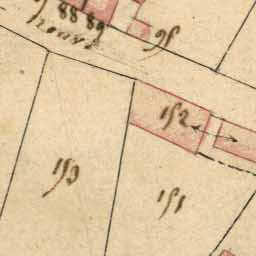 88 89
96
152
153
151